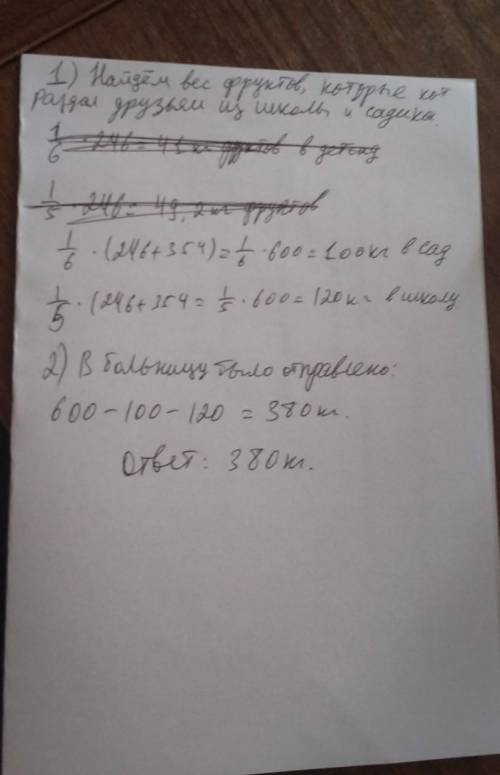 1) Найдём вес фруктов, которые кот
раздал друзьям из школы и садика.
1/6 · 246 = 41 кг фруктов в детсад
1/5 · 246 = 49,2 кг фруктов
1/6 · (246+354) = 1/6 · 600 = 100 кг в сад
1/5 · (246+354 = 1/5 · 600 = 120 кг в школу
2) В больницу было отправлено:
600 - 100 - 120 = 380 кг.
Ответ: 380 кг.